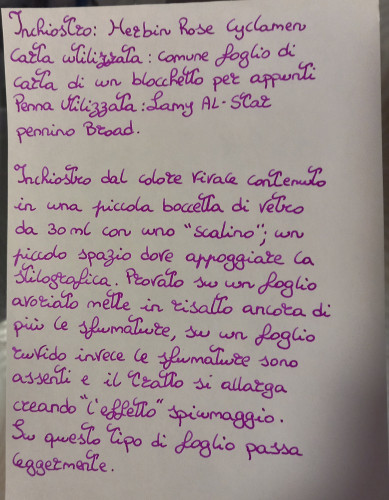 Inchiostro: Herbin Rose Cyclamen
Carta utilizzata: comune foglio di
carta di un blocchetto per appunti
Penna utilizzata: Lamy AL-Star
pennino Broad.
Inchiostro dal colore vivace contenuto
in una piccola boccetta di vetro
da 30 ml con uno "scalino"; un
piccolo spazio dove appoggiare la
stilografica. Provato su un foglio
avoriato mette in risalto ancora di
più le sfumature, su un foglio
ruvido invece le sfumature sono
assenti e il tratto si allarga
creando "l'effetto" spiumaggio.
Su questo tipo di foglio passa
leggermente.